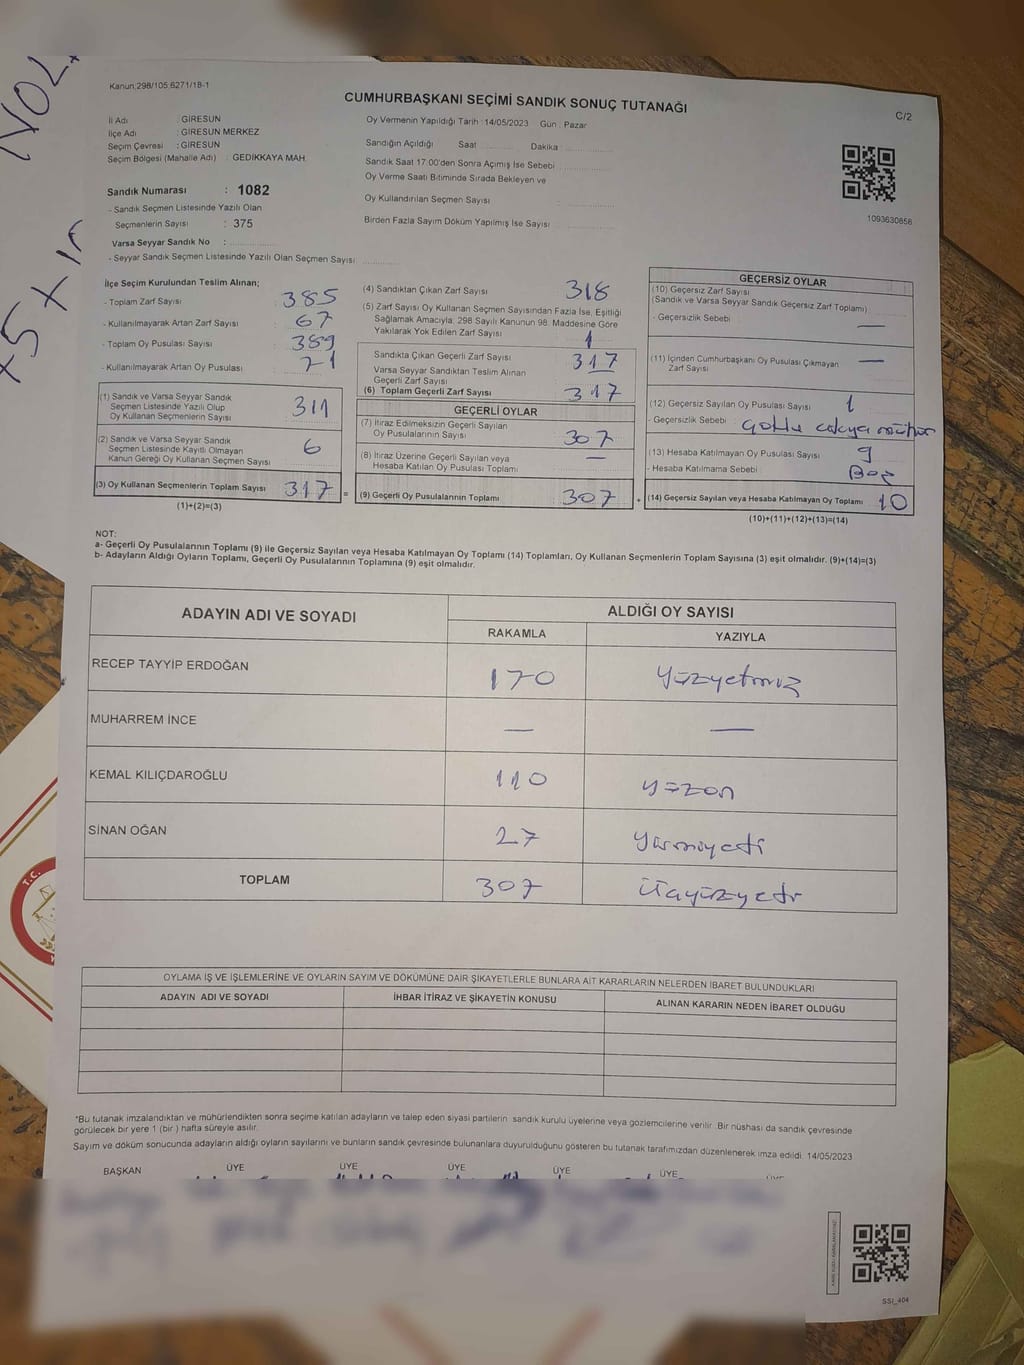 Kanun:298/105 6271/1B-1
CUMHURBAŞKANI SEÇİMİ SANDIK SONUÇ TUTANAĞI
C/2
İl Adı : GİRESUN
İlçe Adı : GİRESUN MERKEZ
Seçim Çevresi : GİRESUN
Seçim Bölgesi (Mahalle Adı) : GEDİKKAYA MAH.
Sandık Numarası : 1082
- Sandık Seçmen Listesinde Yazılı Olan
Seçmenlerin Sayısı : 375
Varsa Seyyar Sandık No :
- Seyyar Sandık Seçmen Listesinde Yazılı Olan Seçmen Sayısı
Oy Vermenin Yapıldığı Tarih :14/05/2023 Gün : Pazar
Sandığın Açıldığı Saat Dakika
Sandık Saat 17:00'den Sonra Açımış İse Sebebi
Oy Verme Saati Bitiminde Sırada Bekleyen ve
Oy Kullandırılan Seçmen Sayısı :
Birden Fazla Sayım Döküm Yapılmış İse Sayısı :
1093630658
İlçe Seçim Kurulundan Teslim Alınan;
- Toplam Zarf Sayısı 385
- Kullanılmayarak Artan Zarf Sayısı 67
- Toplam Oy Pusulası Sayısı 389
- Kullanılmayarak Artan Oy Pusulası 71
(1) Sandık ve Varsa Seyyar Sandık
Seçmen Listesinde Yazılı Olup
Oy Kullanan Seçmenlerin Sayısı 311
(2) Sandık ve Varsa Seyyar Sandık
Seçmen Listesinde Kayıtlı Olmayan
Kanun Gereği Oy Kullanan Seçmen Sayısı 6
(3) Oy Kullanan Seçmenlerin Toplam Sayısı 317 =
(1)+(2)=(3)
(4) Sandıktan Çıkan Zarf Sayısı 318
(5) Zarf Sayısı Oy Kullanan Seçmen Sayısından Fazla İse, Eşitliği
Sağlamak Amacıyla, 298 Sayılı Kanunun 98. Maddesine Göre
Yakılarak Yok Edilen Zarf Sayısı 1
Sandıkta Çıkan Geçerli Zarf Sayısı 317
Varsa Seyyar Sandıktan Teslim Alınan
Geçerli Zarf Sayısı —
(6) Toplam Geçerli Zarf Sayısı 317
GEÇERLİ OYLAR
(7) İtiraz Edilmeksizin Geçerli Sayılan
Oy Pusulalarının Sayısı 307
(8) İtiraz Üzerine Geçerli Sayılan veya
Hesaba Katılan Oy Pusulası Toplamı —
(9) Geçerli Oy Pusulalarının Toplamı 307 +
GEÇERSİZ OYLAR
(10) Geçersiz Zarf Sayısı
(Sandık ve Varsa Seyyar Sandık Geçersiz Zarf Toplamı)
- Geçersizlik Sebebi —
(11) İçinden Cumhurbaşkanı Oy Pusulası Çıkmayan
Zarf Sayısı —
(12) Geçersiz Sayılan Oy Pusulası Sayısı 1
- Geçersizlik Sebebi
(13) Hesaba Katılmayan Oy Pusulası Sayısı 9
- Hesaba Katılmama Sebebi Boş
(14) Geçersiz Sayılan veya Hesaba Katılmayan Oy Toplamı 10
(10)+(11)+(12)+(13)=(14)
NOT:
a- Geçerli Oy Pusulalarının Toplamı (9) ile Geçersiz Sayılan veya Hesaba Katılmayan Oy Toplamı (14) Toplamları, Oy Kullanan Seçmenlerin Toplam Sayısına (3) eşit olmalıdır. (9)+(14)=(3)
b- Adayların Aldığı Oyların Toplamı, Geçerli Oy Pusulalarının Toplamına (9) eşit olmalıdır.
ADAYIN ADI VE SOYADI ALDIĞI OY SAYISI
RAKAMLA YAZIYLA
RECEP TAYYİP ERDOĞAN 170 yüzyetmiş
MUHARREM İNCE — —
KEMAL KILIÇDAROĞLU 110 yüzon
SİNAN OĞAN 27 yirmiyedi
TOPLAM 307 üçyüzyedi
OYLAMA İŞ VE İŞLEMLERİNE VE OYLARIN SAYIM VE DÖKÜMÜNE DAİR ŞİKAYETLERLE BUNLARA AİT KARARLARIN NELERDEN İBARET BULUNDUKLARI
ADAYIN ADI VE SOYADI İHBAR İTİRAZ VE ŞİKAYETİN KONUSU ALINAN KARARIN NEDEN İBARET OLDUĞU
*Bu tutanak imzalandıktan ve mühürlendikten sonra seçime katılan adayların ve talep eden siyasi partilerin sandık kurulu üyelerine veya gözlemcilerine verilir. Bir nüshası da sandık çevresinde
görülecek bir yere 1 (bir ) hafta süreyle asılır.
Sayım ve döküm sonucunda adayların aldığı oyların sayılarını ve bunların sandık çevresinde bulunanlara duyurulduğunu gösteren bu tutanak tarafımızdan düzenlenerek imza edildi. 14/05/2023
BAŞKAN ÜYE ÜYE ÜYE ÜYE ÜYE ÜYE
SSİ_404
T.C.